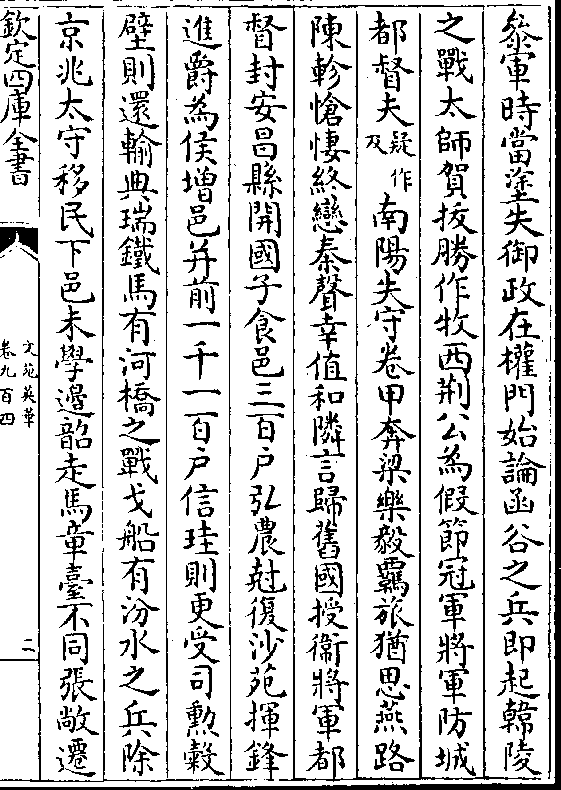 叅軍時當塗失御政在權門始論函谷之兵即起韓陵
之戰太師賀拔勝作牧西荆公為假節冠軍將軍防城
都督夫疑作及南陽失守卷甲奔梁樂毅羈旅猶思燕路
陳軫愴悽終戀秦聲幸值和隣言歸舊國授衞將軍都
督封安昌縣開國子食邑三百户弘農尅復沙苑揮鋒
進爵為侯增邑并前一千一百户信珪則更受司勲榖
璧則還輸典瑞鐵馬有河橋之戰戈船有汾水之兵除
京兆太守移民下邑未學邉韶走馬章臺不同張敞遷
欽定四庫全書
文苑英華
卷九百四
二